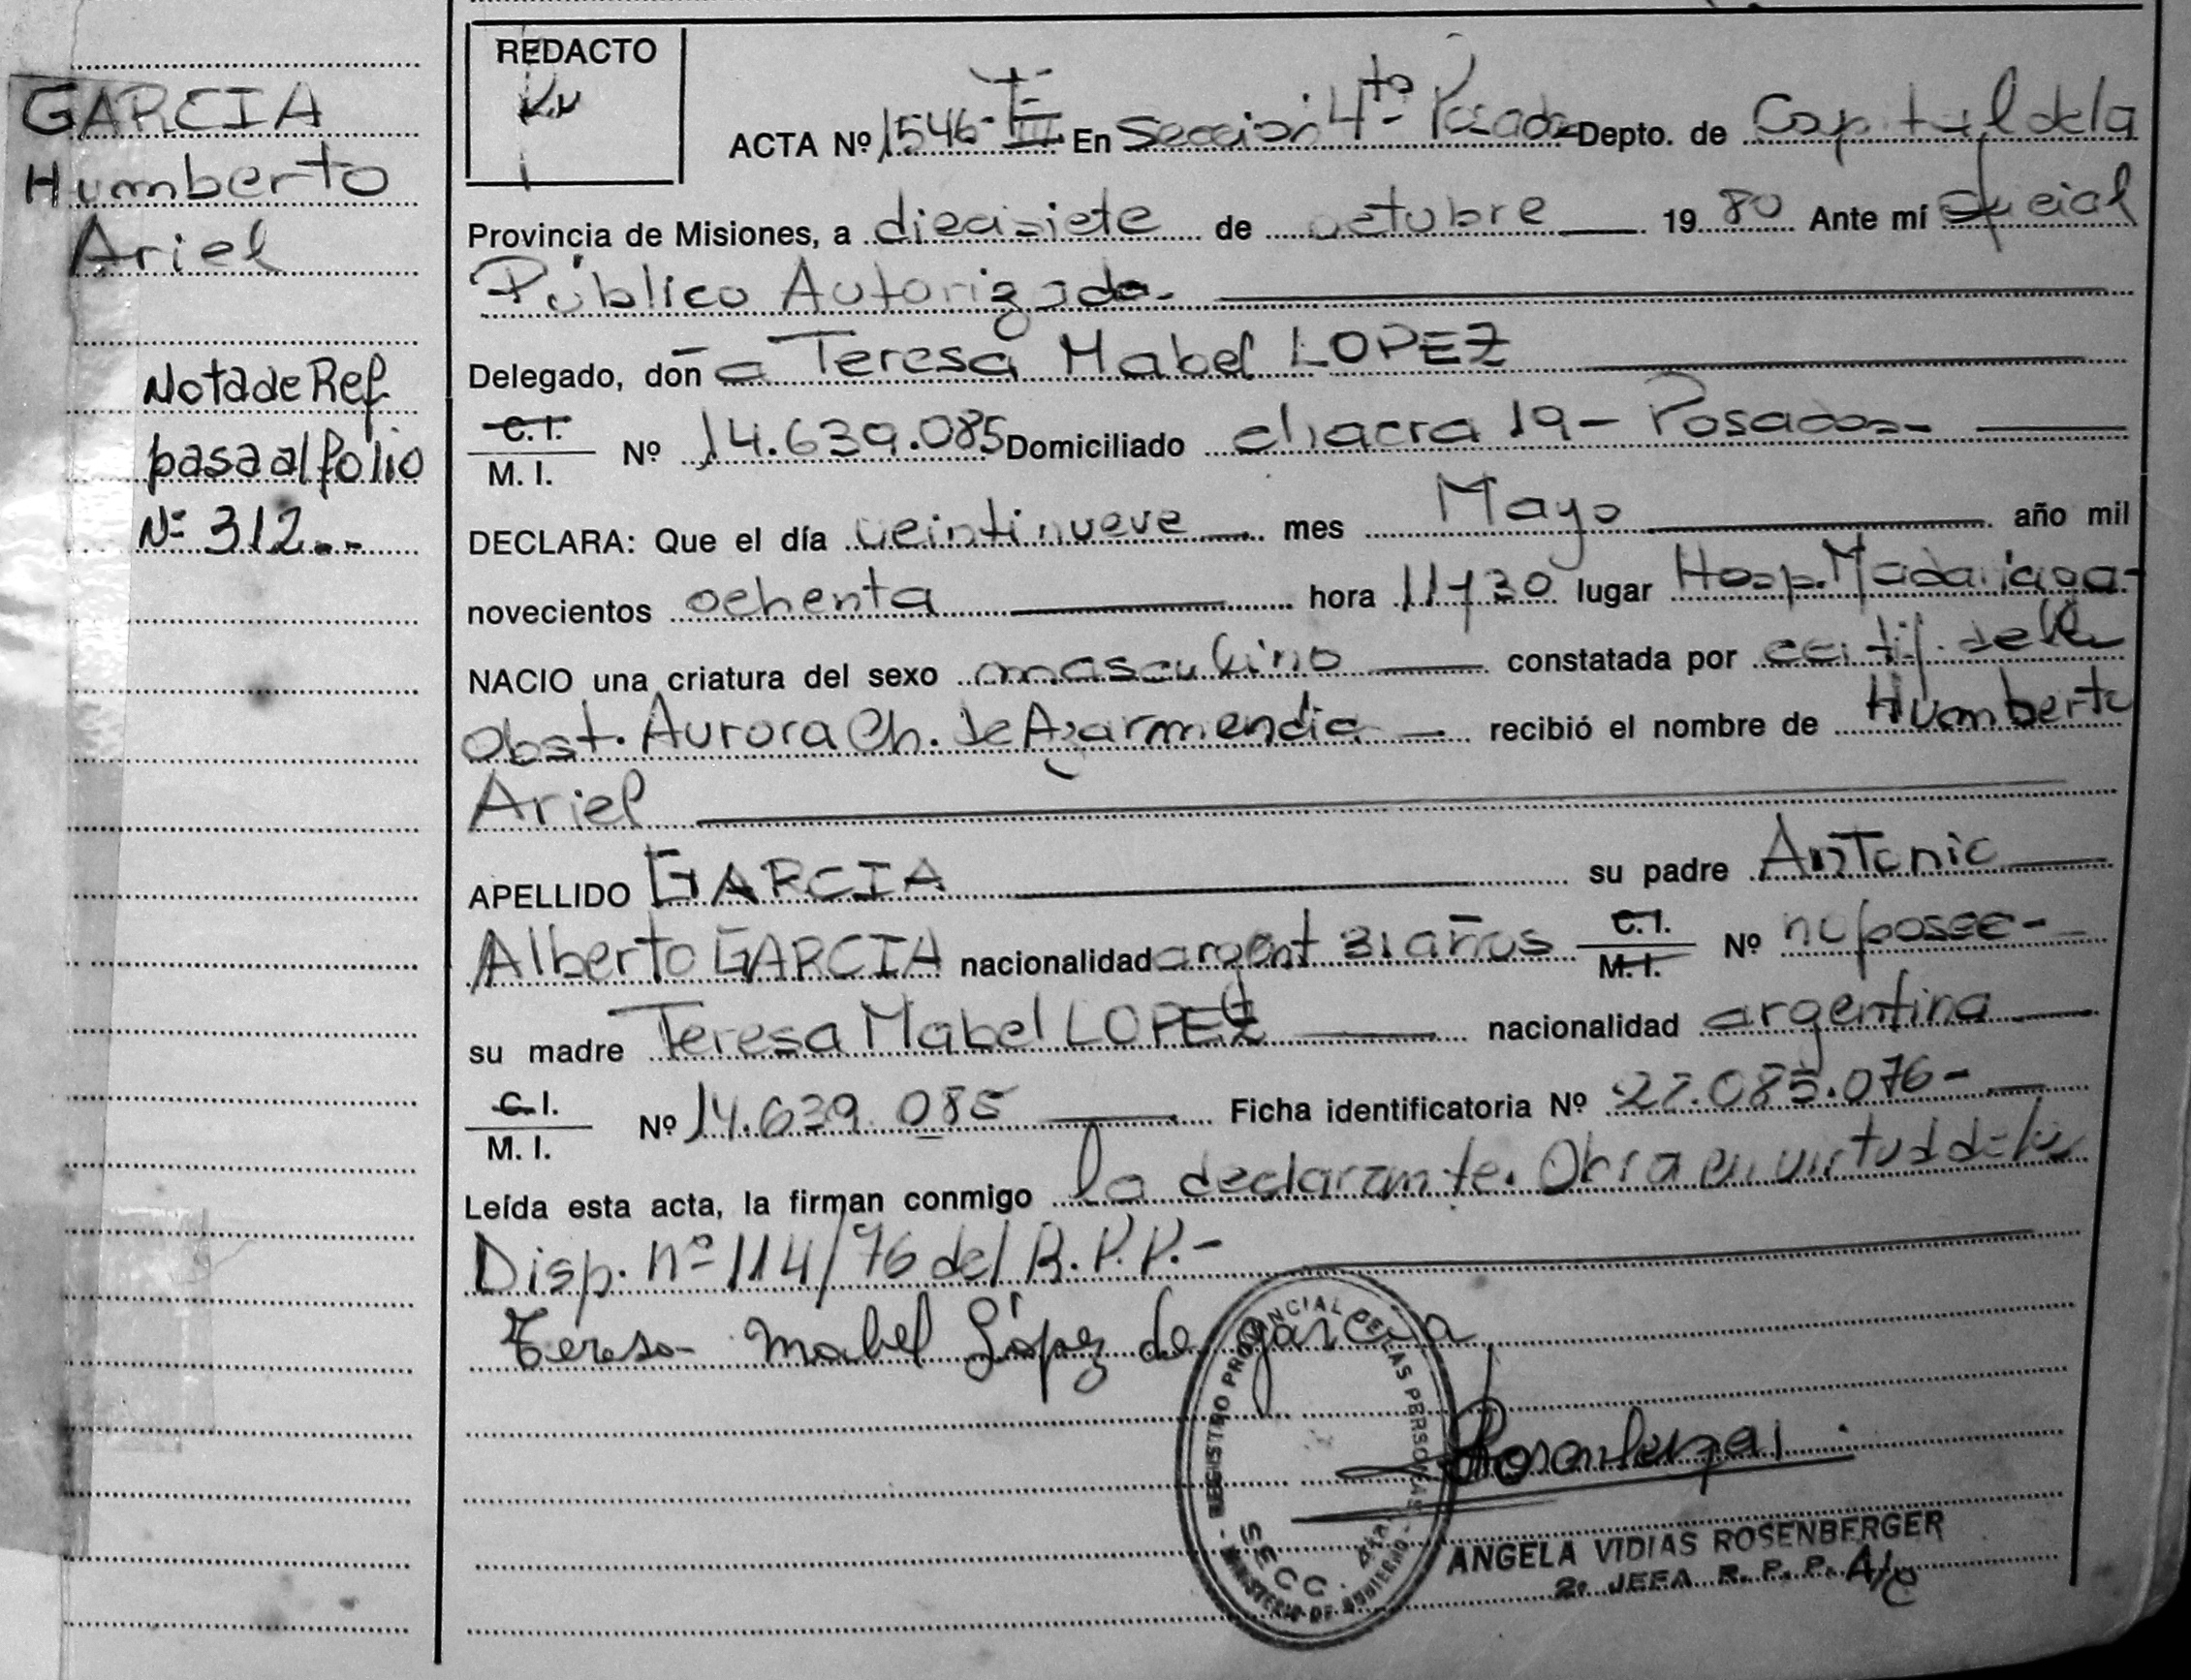 GARCIA
Humberto
Ariel
Nota de Ref.
pasa al folio
Nº 312..-
REDACTO
ACTA Nº 1546-T III En Sección 4ta Posadas Depto. de Capital de la
Provincia de Misiones, a diecisiete de octubre 1980 Ante mí oficial
Público Autorizado-
Delegado, doña Teresa Mabel LOPEZ
C. I.
M. I. Nº 14.639.085 Domiciliado chacra 19- Posadas-
DECLARA: Que el día veintinueve mes Mayo año mil
novecientos ochenta hora 11y30 lugar Hosp. Madariaga-
NACIO una criatura del sexo masculino constatada por certif. de la
Obst. Aurora Ch. de Azarmendia recibió el nombre de Humberto
Ariel
APELLIDO GARCIA su padre Antonio
Alberto GARCIA nacionalidad argent 31 años C. I. M. I. Nº no posee-
su madre Teresa Mabel LOPEZ nacionalidad argentina
C. I.
M. I. Nº 14.639.085 Ficha identificatoria Nº 27.085.076-
Leída esta acta, la firman conmigo la declarante. Obra en virtud de la
Disp. nº 114/76 del R.P.P.-
Teresa Mabel López de Garcia
REGISTRO PROVINCIAL DE LAS PERSONAS
SECC. 4TA.
MINISTERIO DE GOBIERNO
ANGELA VIDIAS ROSENBERGER
2º JEFA R. P. P. A/C